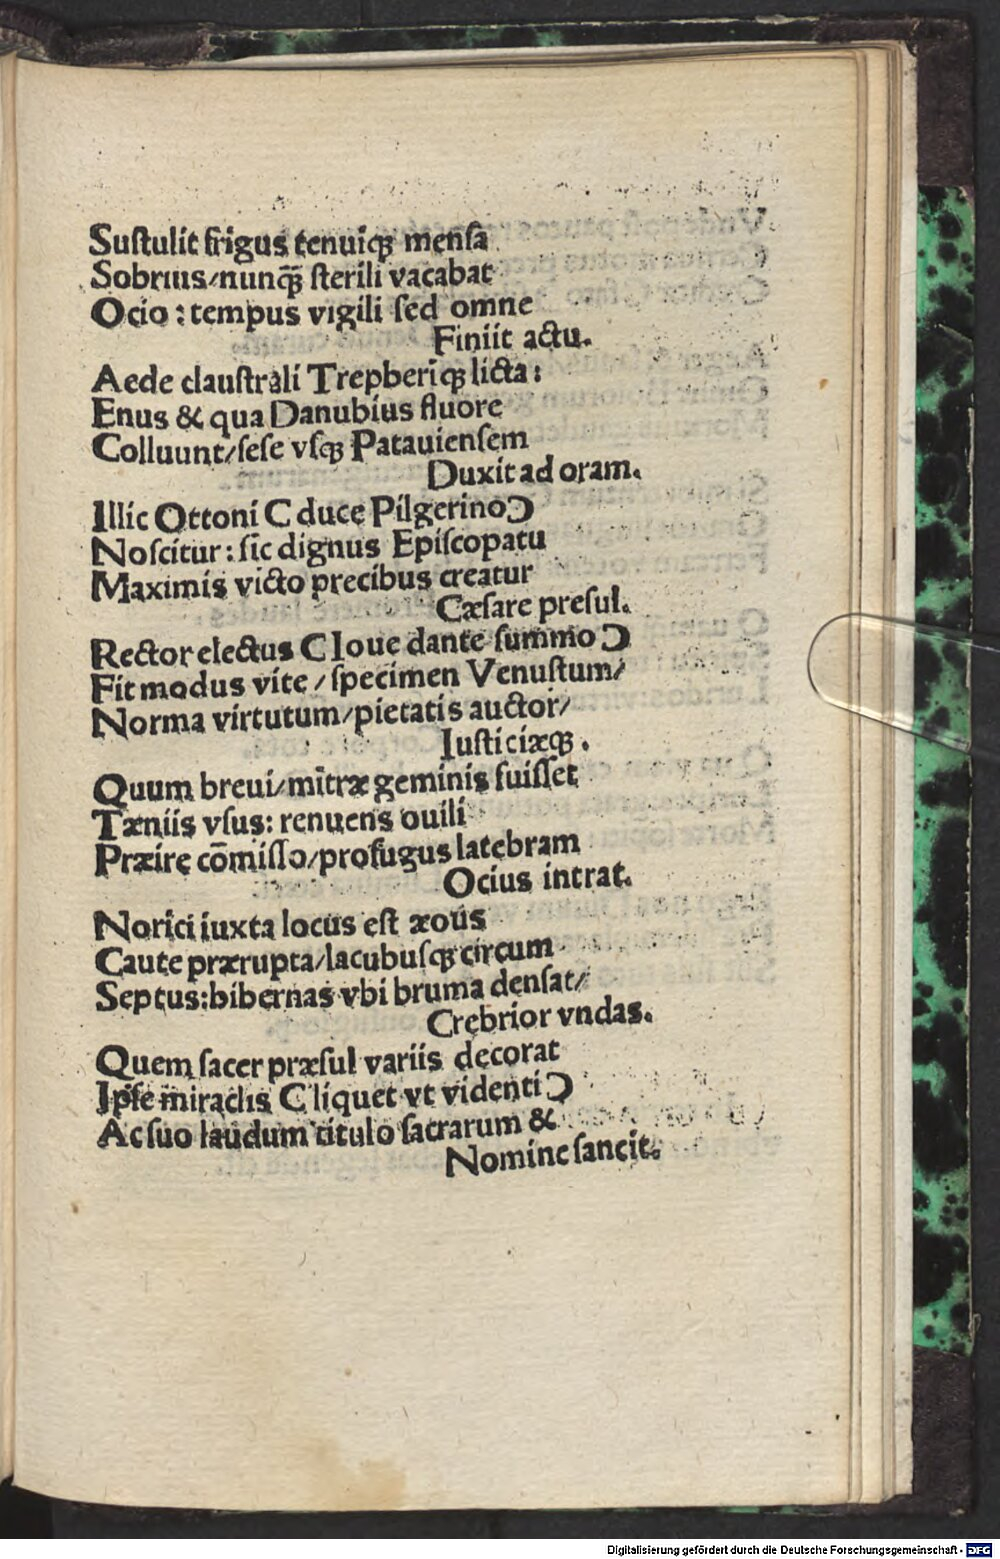 Suſtulit frigus tenuiqꝫ menſa
Sobrius/nunqꝫ̃ ſterili vacabat
Ocio : tempus vigili ſed omne
Finiit actu.
Aede clauſtrali Trepberiqꝫ licta :
Enus & qua Danubius fluore
Colluunt/ſeſe vſqꝫ Patauienſem
Duxit ad oram.
Illic Ottoni C duce Pilgerino Ɔ
Noſcitur : ſic dignus Epiſcopatu
Maximis victo precibus creatur
Cæſare preſul.
Rector electus C Ioue dante ſummo Ɔ
Fit modus vite / ſpecimen Venuſtum/
Norma virtutum/pietatis auctor/
Iuſticiæqꝫ .
Quum breui/mitræ geminis fuiſſet
Tæniis vſus: renuens ouili
Præire cōmiſſo/profugus latebram
Ocius intrat.
Norici iuxta locus eſt æous
Caute prærupta/lacubuſqꝫ circum
Septus:hibernas vbi bruma denſat/
Crebrior vndas.
Quem ſacer præſul variis decorat
Ipſe miraclis C liquet vt videnti Ɔ
Ac ſuo laudum titulo ſacrarum &
Nomine ſancit.
Digitalisierung gefördert durch die Deutsche Forschungsgemeinschaft - DFG